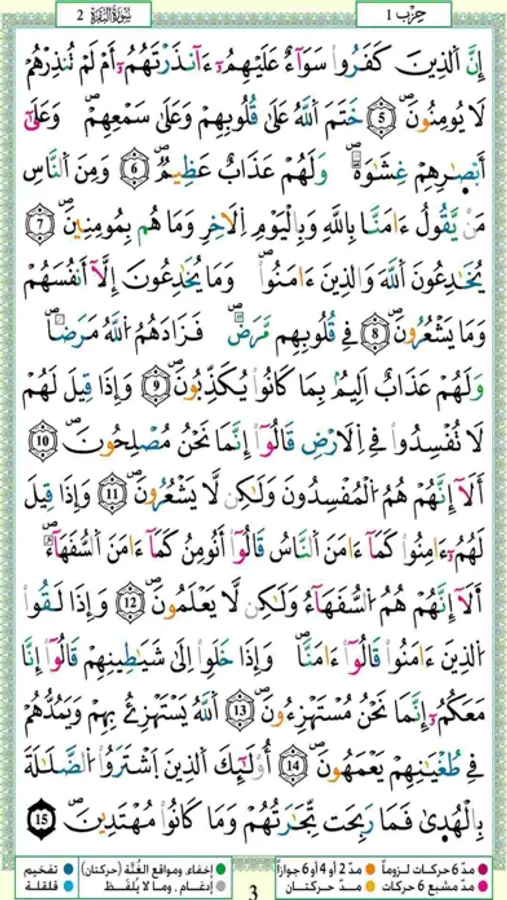 سُورَةُ البَقَرَة 2
حِزْب 1
إِنَّ اَ۬لذِينَ كَفَرُوا سَوَآءٌ عَلَيْهِمُۥٓ ءَآنذَرْتَهُمُۥٓ أَمْ لَمْ تُنذِرْهُمْ
لَا يُومِنُونَۖ 5 خَتَمَ اَ۬للَّهُ عَلَىٰ قُلُوبِهِمْ وَعَلَىٰ سَمْعِهِمْۖ وَعَلَىٰٓ
أَبْصٰ۪رِهِمْ غِشَٰوَةٌۖ وَلَهُمْ عَذَابٌ عَظِيمٌۖ 6 وَمِنَ اَ۬لنَّاسِ
مَنْ يَّقُولُ ءَامَنَّا بِاللَّهِ وَبِالْيَوْمِ اِ۬لَاخِرِ وَمَا هُم بِمُومِنِينَۖ 7
يُخَٰدِعُونَ اَ۬للَّهَ وَالذِينَ ءَامَنُواۖ وَمَا يُخَٰدِعُونَ إِلَّآ أَنفُسَهُمْ
وَمَا يَشْعُرُونَۖ 8 فِي قُلُوبِهِم مَّرَضٌۖ فَزَادَهُمُ اُ۬للَّهُ مَرَضاٗۖ
وَلَهُمْ عَذَابٌ اَلِيمُۢ بِمَا كَانُوا يُكَذِّبُونَۖ 9 وَإِذَا قِيلَ لَهُمْ
لَا تُفْسِدُوا فِي اِ۬لَارْضِ قَالُوٓا إِنَّمَا نَحْنُ مُصْلِحُونَۖ 10
أَلَآ إِنَّهُمْ هُمُ اُ۬لْمُفْسِدُونَ وَلَٰكِن لَّا يَشْعُرُونَۖ 11 وَإِذَا قِيلَ
لَهُمُۥٓ ءَامِنُوا كَمَآ ءَامَنَ اَ۬لنَّاسُ قَالُوٓا أَنُومِنُ كَمَآ ءَامَنَ اَ۬لسُّفَهَآءُۖ
أَلَآ إِنَّهُمْ هُمُ اُ۬لسُّفَهَآءُ وَلَٰكِن لَّا يَعْلَمُونَۖ 12 وَإِذَا لَقُوا
اُ۬لذِينَ ءَامَنُوا قَالُوٓا ءَامَنَّاۖ وَإِذَا خَلَوِا اِلَىٰ شَيَٰطِينِهِمْ قَالُوٓا إِنَّا
مَعَكُمُۥٓ إِنَّمَا نَحْنُ مُسْتَهْزِءُونَۖ 13 اَ۬للَّهُ يَسْتَهْزِئُ بِهِمْ وَيَمُدُّهُمْ
فِي طُغْيَٰنِهِمْ يَعْمَهُونَۖ 14 أُوْلَٰٓئِكَ اَ۬لذِينَ اَ۪شْتَرَوُا اُ۬لضَّلَٰلَةَ
بِالْهُدَىٰ فَمَا رَبِحَت تِّجَٰرَتُهُمْ وَمَا كَانُوا مُهْتَدِينَۖ 15
مدّ 6 حركات لزوماً مدّ 2 أو 4 أو 6 جوازاً إخفاء، ومواقع الغُنَّة (حركتان) تفخيم
مدّ مشبع 6 حركات مدّ حركتان إدغام، وما لا يُلفَظ قلقلة
3